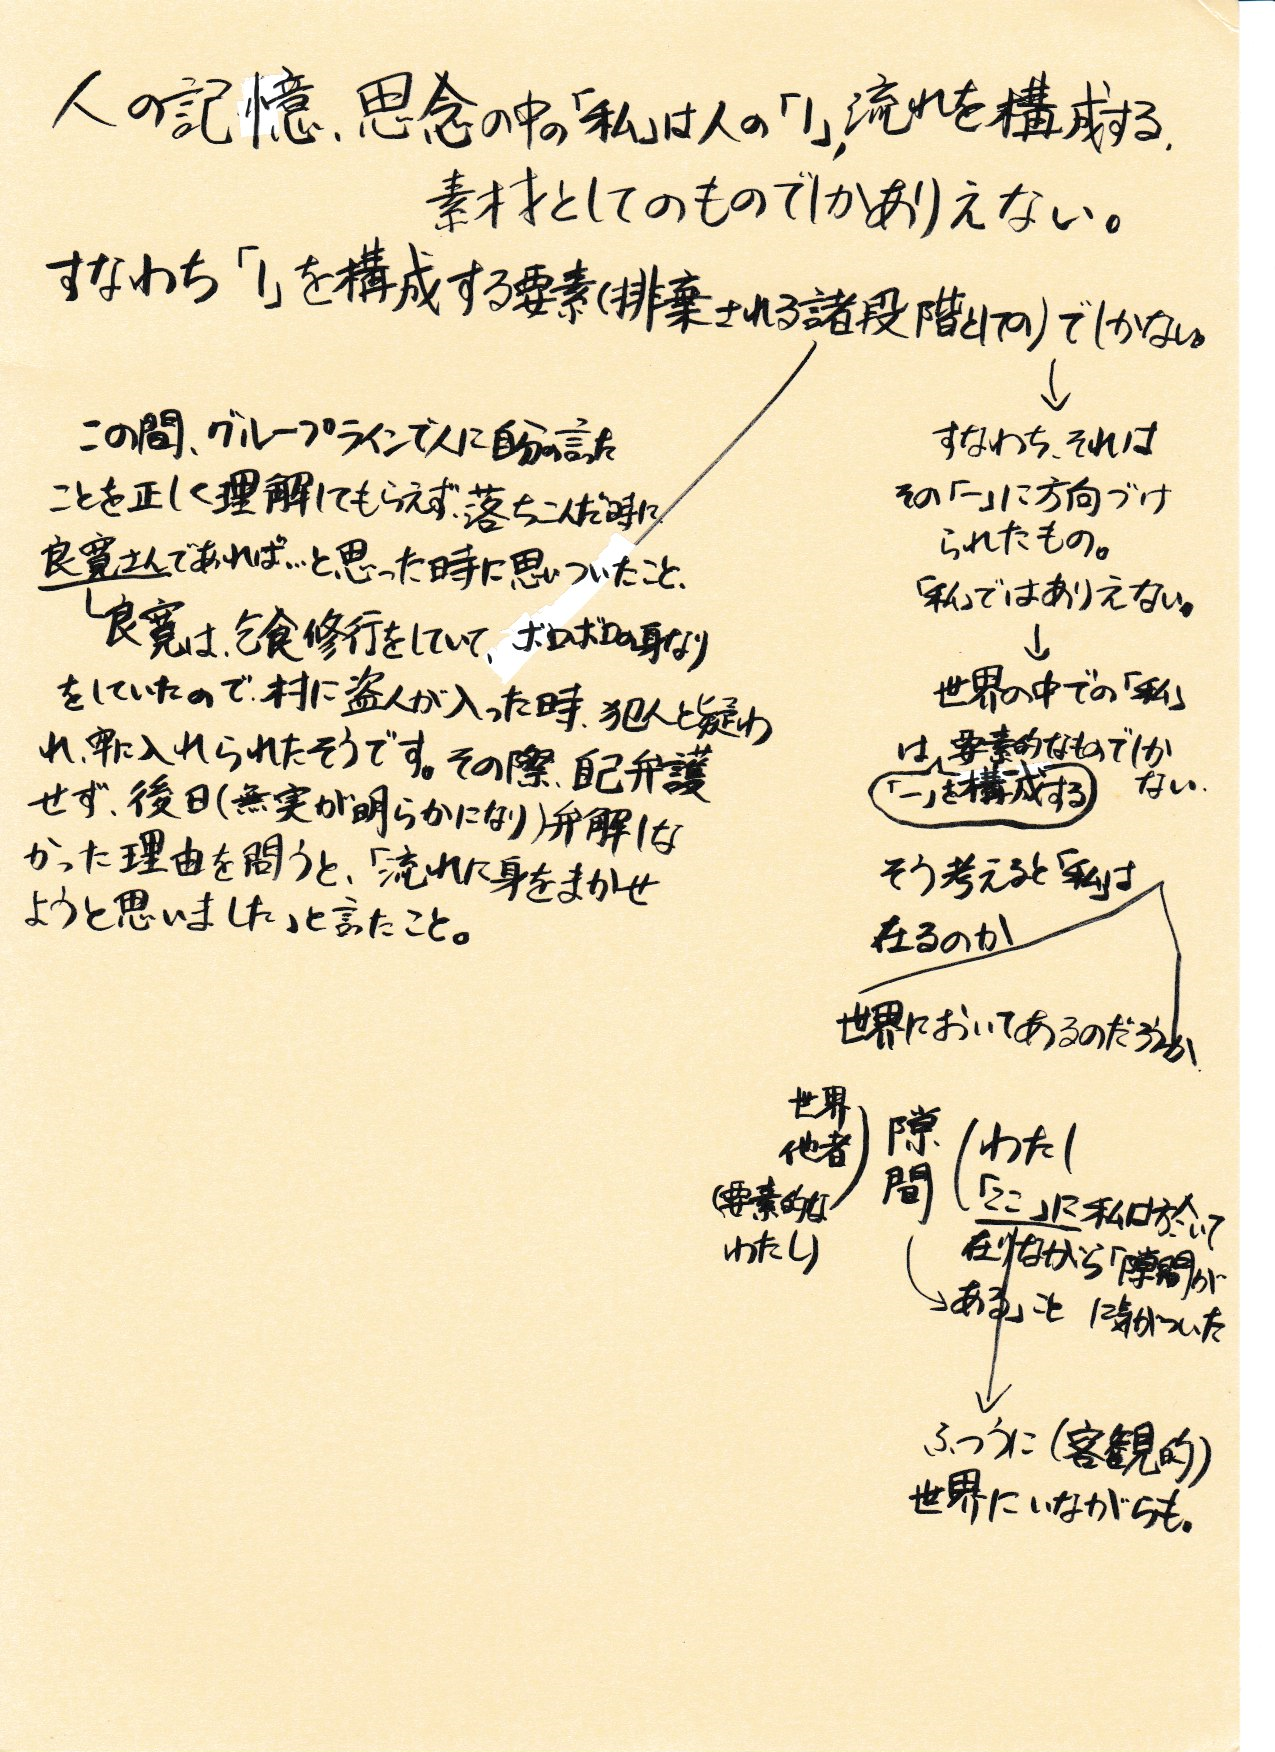 人の記憶、思念の中の「私」は人の「1」、流れを構成する、
素材としてのものでしかありえない。
すなわち「1」を構成する要素(排棄される諸段階としての)でしかない。
この間、グループラインで人に自分の言った
ことを正しく理解してもらえず、落ちこんだ時に
良寛さんであれば…と思った時に思いついたこと、
良寛は、乞食修行をしていて、ボロボロの身なり
をしていたので、村に盗人が入った時、犯人と疑わ
れ、牢に入れられたそうです。その際、自己弁護
せず、後日(無実が明らかになり)弁解しな
かった理由を問うと、「流れに身をまかせ
ようと思いました」と言ったこと。
すなわち、それは
その「一」に方向づけ
られたもの。
「私」ではありえない。
世界の中での「私」
は、要素的なものでしか
「一」を構成する
ない。
そう考えると「私」は
在るのか
世界においてあるのだろうか
世界
他者
(要素的な
わたし)
隙
間
わたし
「ここ」に私は於いて
在りながら「隙間が
ある」こと に気がついた
ふつうに(客観的)
世界にいながらも。